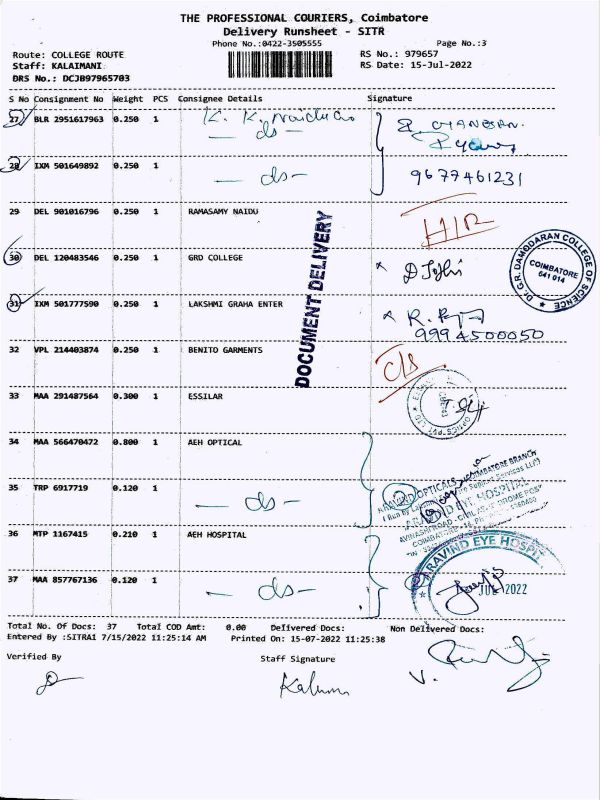 THE PROFESSIONAL COURIERS, Coimbatore
Delivery Runsheet - SITR
Phone No.:0422-3505555 Page No.:3
Route: COLLEGE ROUTE RS No.: 979657
Staff: KALAIMANI RS Date: 15-Jul-2022
DRS No.: DCJB97965703
S No Consignment No Weight PCS Consignee Details Signature
27 BLR 2951617963 0.250 1 K. K. Naidu
- ds -
28 IXM 501649892 0.250 1 - ds - 9677461231
29 DEL 901016796 0.250 1 RAMASAMY NAIDU
DOCUMENT DELIVERY
30 DEL 120483546 0.250 1 GRD COLLEGE
DR. G.R. DAMODARAN COLLEGE OF SCIENCE
COIMBATORE
641 014
31 IXM 501777590 0.250 1 LAKSHMI GRAHA ENTER
9994500050
32 VPL 214403874 0.250 1 BENITO GARMENTS
33 MAA 291487564 0.300 1 ESSILAR
34 MAA 566470472 0.800 1 AEH OPTICAL
35 TRP 6917719 0.120 1 - ds -
ARAVIND OPTICALS COIMBATORE BRANCH
ARAVIND EYE HOSPITAL
36 MTP 1167415 0.210 1 AEH HOSPITAL
37 MAA 857767136 0.120 1 - ds -
ARAVIND EYE HOSPI
JUL 2022
Total No. Of Docs: 37 Total COD Amt: 0.00 Delivered Docs: Non Delivered Docs:
Entered By :SITRA1 7/15/2022 11:25:14 AM Printed On: 15-07-2022 11:25:38
Verified By Staff Signature